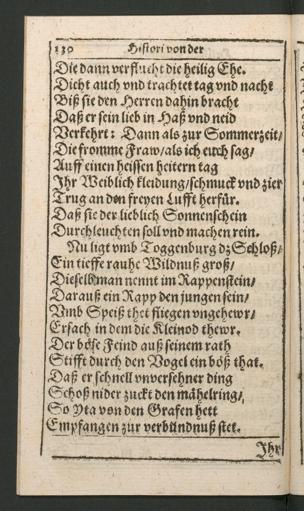 130 Histori von der
Die dann verflucht die heilig Ehe.
Dicht auch vnd trachtet tag vnd nacht
Biß sie den Herren dahin bracht
Daß er sein lieb in Haß vnd neid
Verkehrt: Dann als zur Sommerzeit/
Die fromme Fraw/als ich euch sag/
Auff einen heissen heitern tag
Ihr Weiblich kleidung/schmuck vnd zier
Trug an den freyen Lufft herfür.
Daß sie der lieblich Sonnenschein
Durchleuchten soll vnd machen rein.
Nu ligt vmb Toggenburg dz Schloß/
Ein tieffe rauhe Wildnuß groß/
Dieselb man nennt im Rappenstein/
Darauß ein Rapp den jungen sein/
Vmb Speiß thet fliegen vngehewr/
Ersach in dem die Kleinod thewr.
Der böse Feind auß seinem rath
Stifft durch den Vogel ein böß that.
Daß er schnell vnversehner ding
Schoß nider zuckt den mähelring/
So Yta von den Grafen hett
Empfangen zur verbündnuß stet.
Ihr